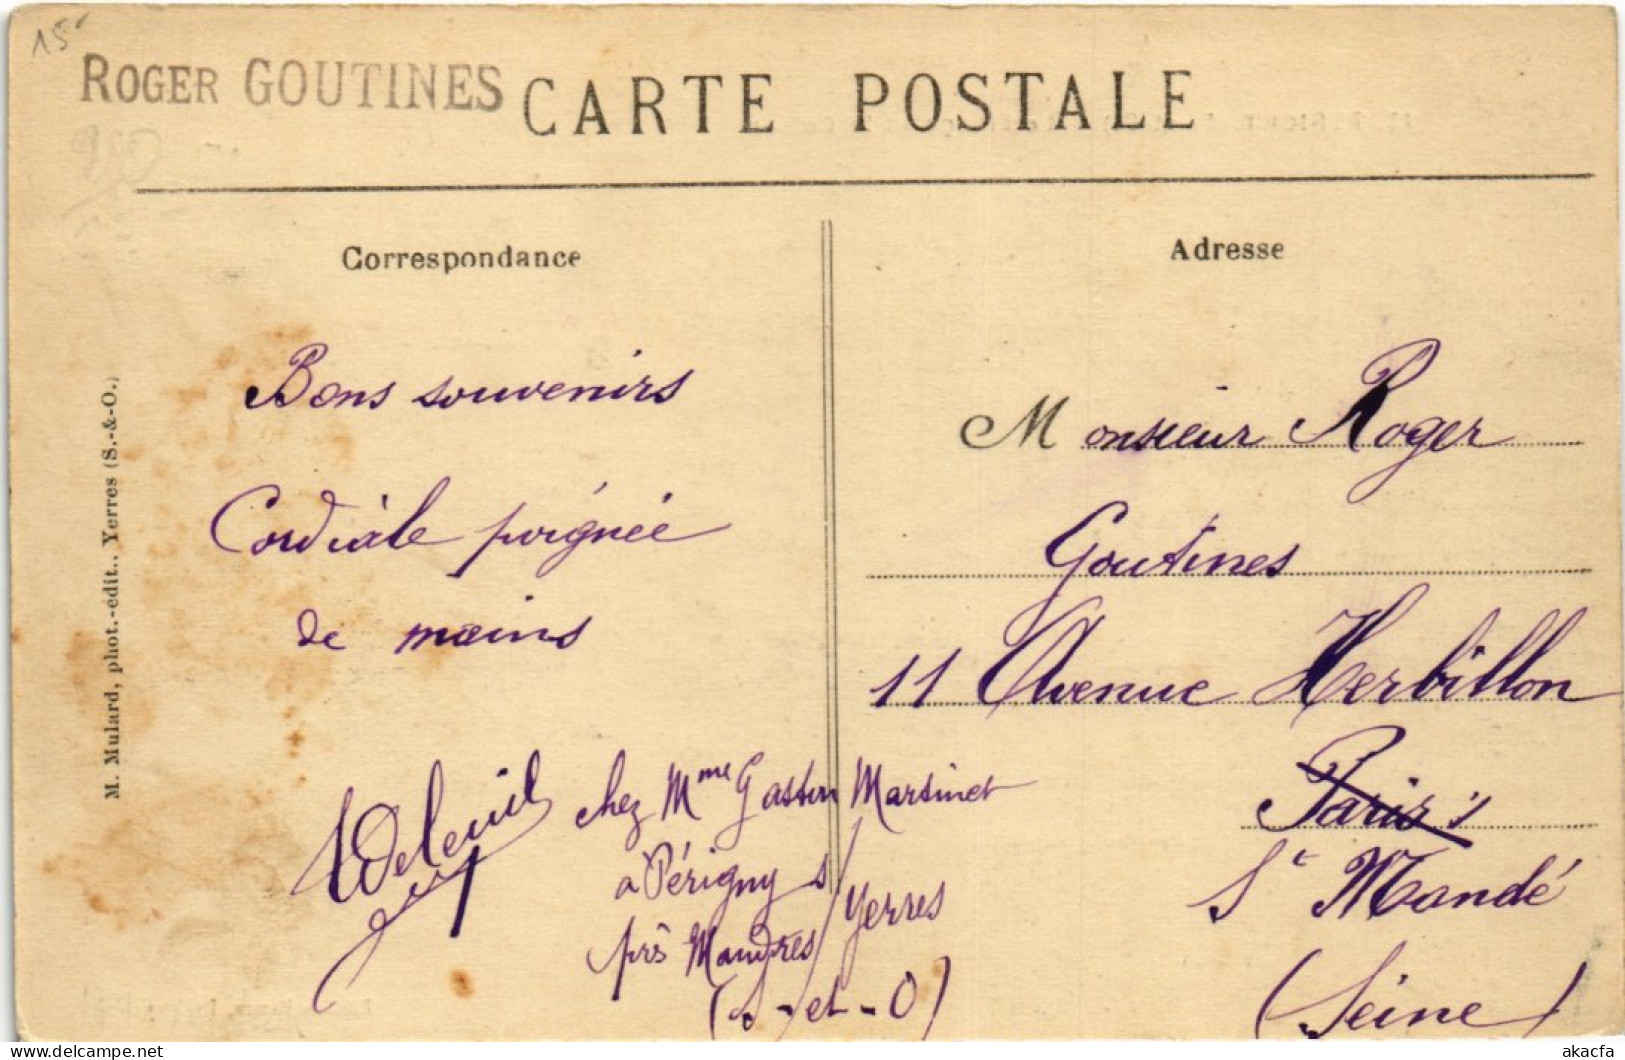 15
ROGER GOUTINES
CARTE POSTALE
Correspondance
Adresse
M. Mulard, phot.-édit., Yerres (S.-&-O.)
Bons souvenirs
Cordiale poignée
de mains
chez Mme Gaston Martinet
a Périgny s/ Yerres
près Mandres
(S-et-O)
Monsieur Roger
Goutines
11 Avenue Herbillon
Paris
St Mandé
(Seine)
akacfa